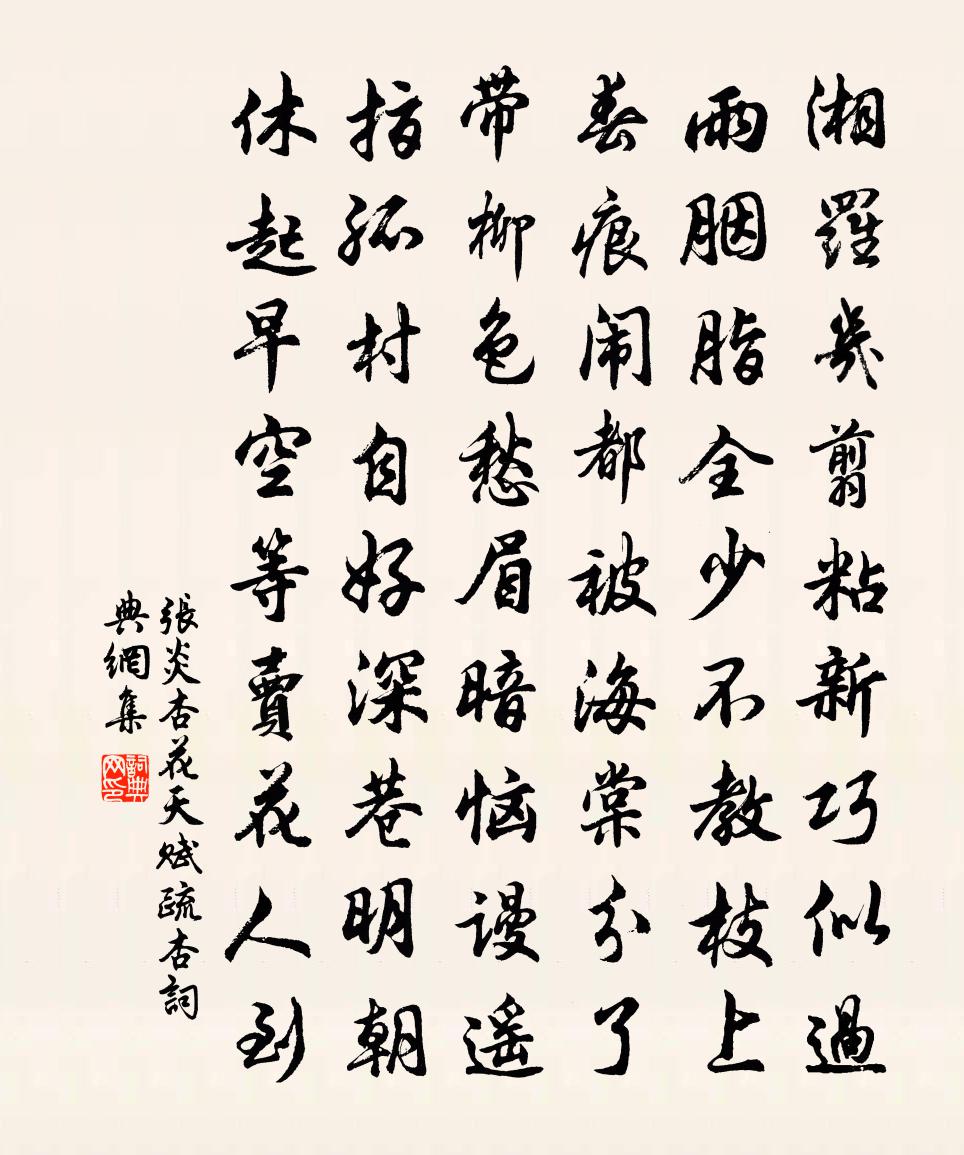 湘羅幾剪粘新巧似過
雨胭脂全少不教枝上
春痕闹都被海棠分了
带柳色愁眉暗恼谩遥
指孤村自好深巷明朝
休起早空等賣花人到
張炎杏花天赋疏杏詞
典網集
詞典
网印